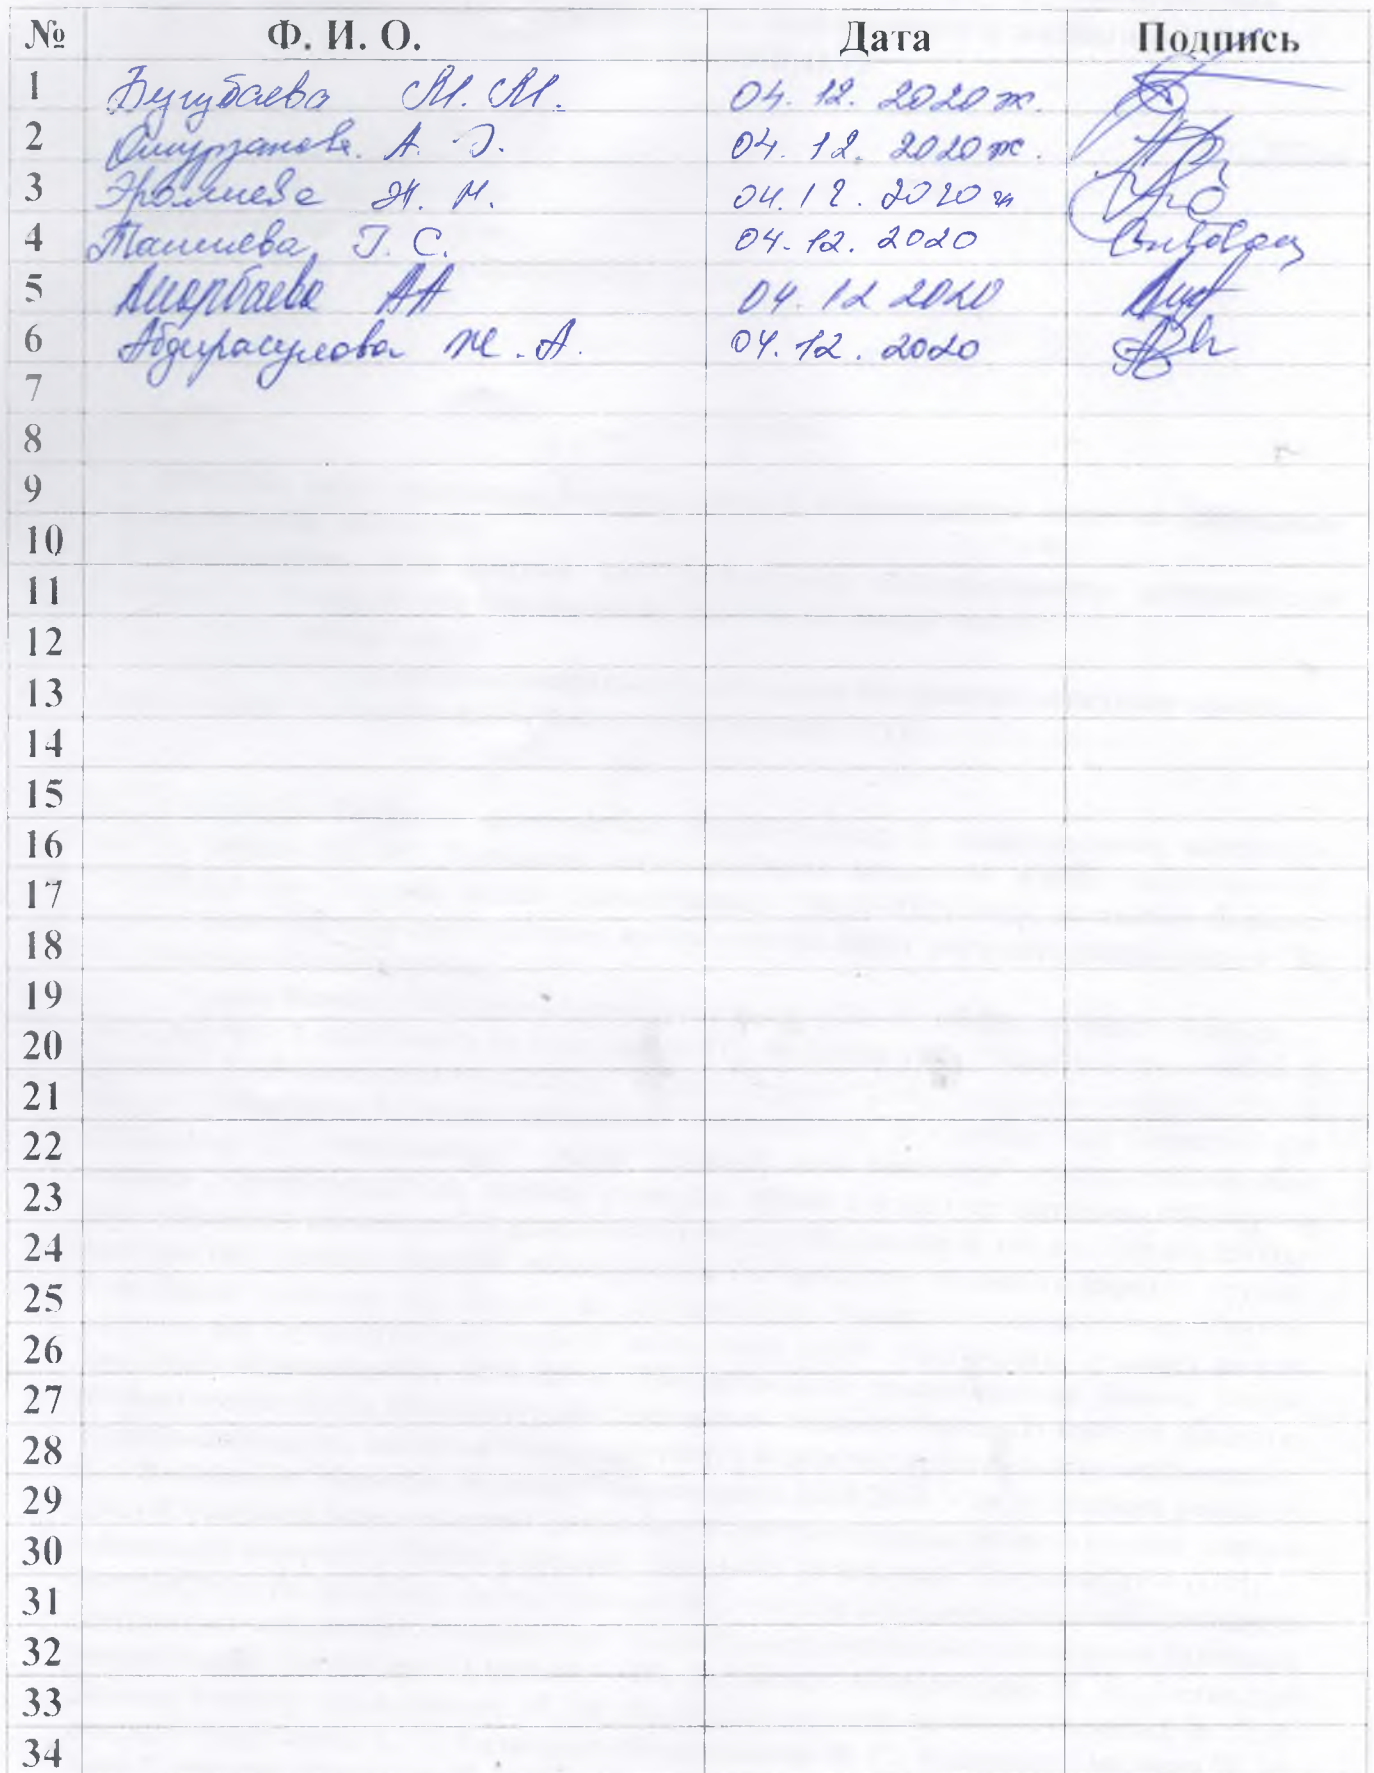 № Ф. И. О. Дата Подпись
1 Бугубаева М. М. 04. 12. 2020 ж.
2 А. Э. 04. 12. 2020 ж.
3 Ж. М. 04. 12. 2020 ж
4 Ташиева Г. С. 04. 12. 2020
5 АА 04. 12 2020
6 Абдирасулова Ж. А. 04. 12. 2020
7
8
9
10
11
12
13
14
15
16
17
18
19
20
21
22
23
24
25
26
27
28
29
30
31
32
33
34